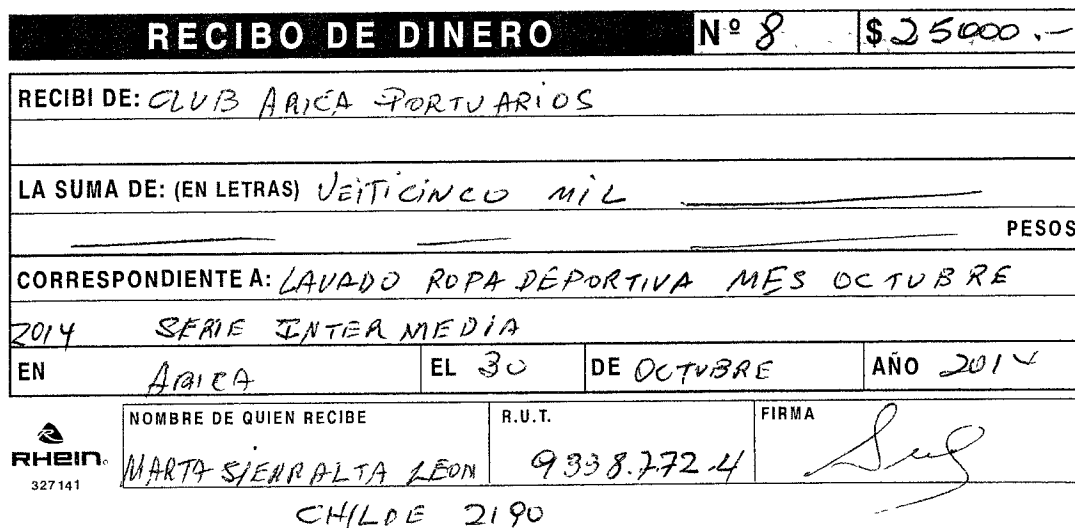 RECIBO DE DINERO Nº 8 $ 25000.-
RECIBI DE: CLUB ARICA PORTUARIOS
LA SUMA DE: (EN LETRAS) VEITICINCO MIL
PESOS
CORRESPONDIENTE A: LAVADO ROPA DEPORTIVA MES OCTUBRE
2014 SERIE INTERMEDIA
EN ARICA EL 30 DE OCTUBRE AÑO 2014
NOMBRE DE QUIEN RECIBE R.U.T. FIRMA
RHEIN
MARTA SIERRALTA LEON 9338.772-4
327141
CHILOE 2190